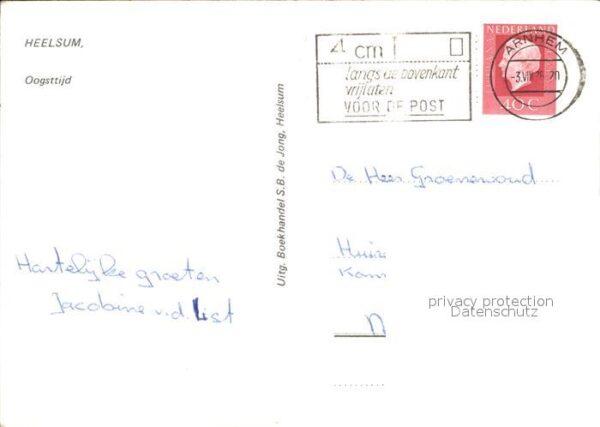 HEELSUM,
Oogsttijd
Hartelijke groeten
Jacobine v.d. List
Uitg. Boekhandel S.B. de Jong, Heelsum
4 cm
langs de bovenkant
vrijlaten
VOOR DE POST
NEDERLAND
ARNHEM
40 C
De Heer Groenewoud
Huize
Kam
privacy protection
Datenschutz